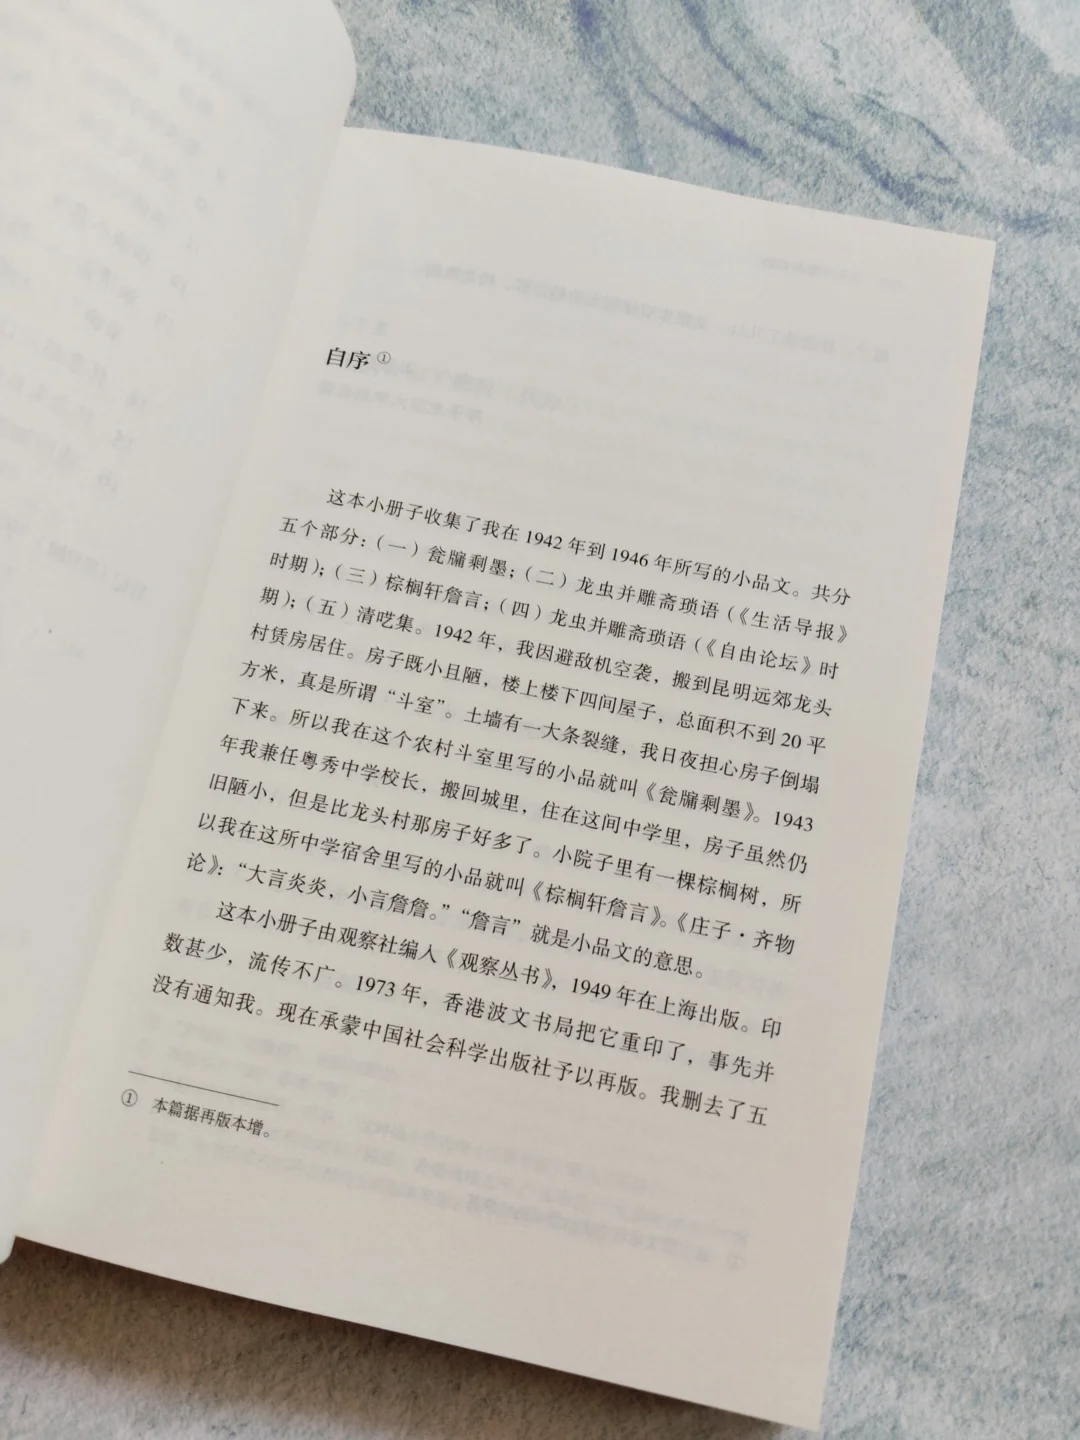 自序①
这本小册子收集了我在1942年到1946年所写的小品文。共分
五个部分：（一）瓮牖剩墨；（二）龙虫并雕斋琐语（《生活导报》
时期）；（三）棕榈轩詹言；（四）龙虫并雕斋琐语（《自由论坛》时
期）；（五）清呓集。1942年，我因避敌机空袭，搬到昆明远郊龙头
村赁房居住。房子既小且陋，楼上楼下四间屋子，总面积不到20平
方米，真是所谓“斗室”。土墙有一大条裂缝，我日夜担心房子倒塌
下来。所以我在这个农村斗室里写的小品就叫《瓮牖剩墨》。1943
年我兼任粤秀中学校长，搬回城里，住在这间中学里，房子虽然仍
旧陋小，但是比龙头村那房子好多了。小院子里有一棵棕榈树，所
以我在这所中学宿舍里写的小品就叫《棕榈轩詹言》。《庄子·齐物
论》：“大言炎炎，小言詹詹。”“詹言”就是小品文的意思。
这本小册子由观察社编入《观察丛书》，1949年在上海出版。印
数甚少，流传不广。1973年，香港波文书局把它重印了，事先并
没有通知我。现在承蒙中国社会科学出版社予以再版。我删去了五
① 本篇据再版本增。